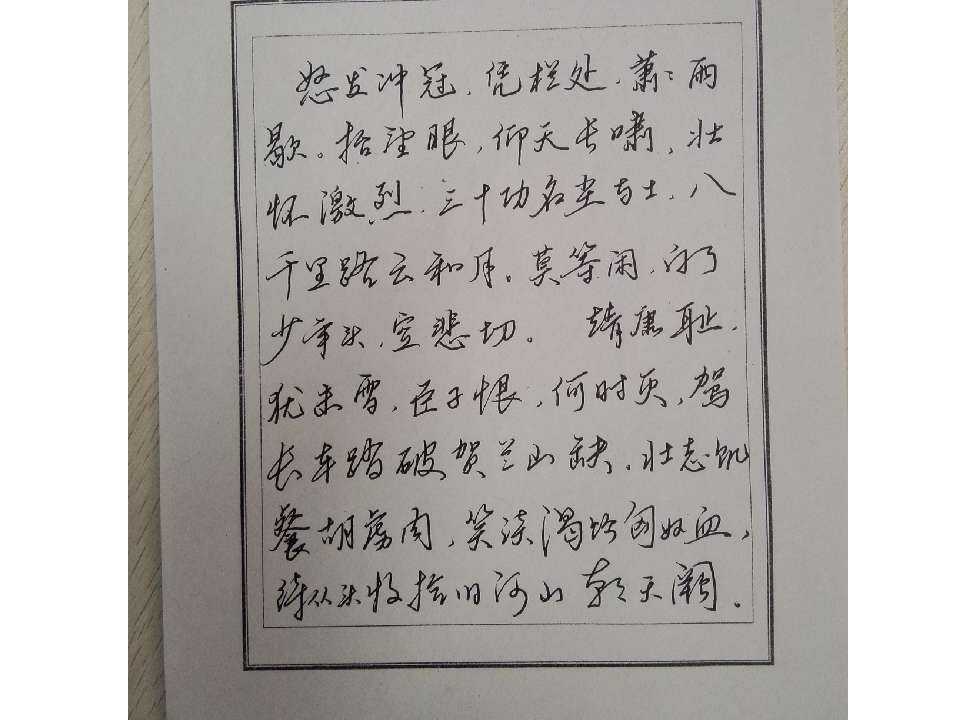 怒发冲冠，凭栏处，萧：雨
歇。抬望眼，仰天长啸，壮
怀激烈，三十功名尘与土，八
千里路云和月。莫等闲，白了
少年头，空悲切。 靖康耻，
犹未雪，臣子恨，何时灭，驾
长车踏破贺兰山缺，壮志饥
餐胡虏肉，笑谈渴饮匈奴血，
待从头收拾旧河山朝天阙。